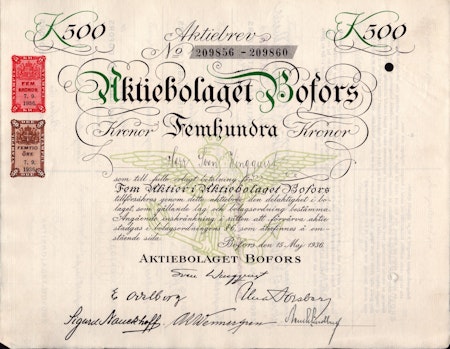 K500 Aktiebrev K500
No 209856 - 209860
Aktiebolaget Bofors
Kronor Femhundra Kronor
FEM
KRONOR
7. 9.
1936
FEMTIO
ÖRE
7. 9.
1936
Herr Sven
som till fullo erlagt betalning för
Fem Aktier i Aktiebolaget Bofors
tillförsäkras genom detta aktiebrev den delaktighet i bo-
laget, som gällande lag och bolagsordning bestämma.
Angående inskränkning i rätten att förvärva aktie
stadgas i bolagsordningens § 6, som återfinnes å om-
stående sida.
Bofors den 15 Maj 1936
AKTIEBOLAGET BOFORS
Sven
E
Sigurd Nauckhoff